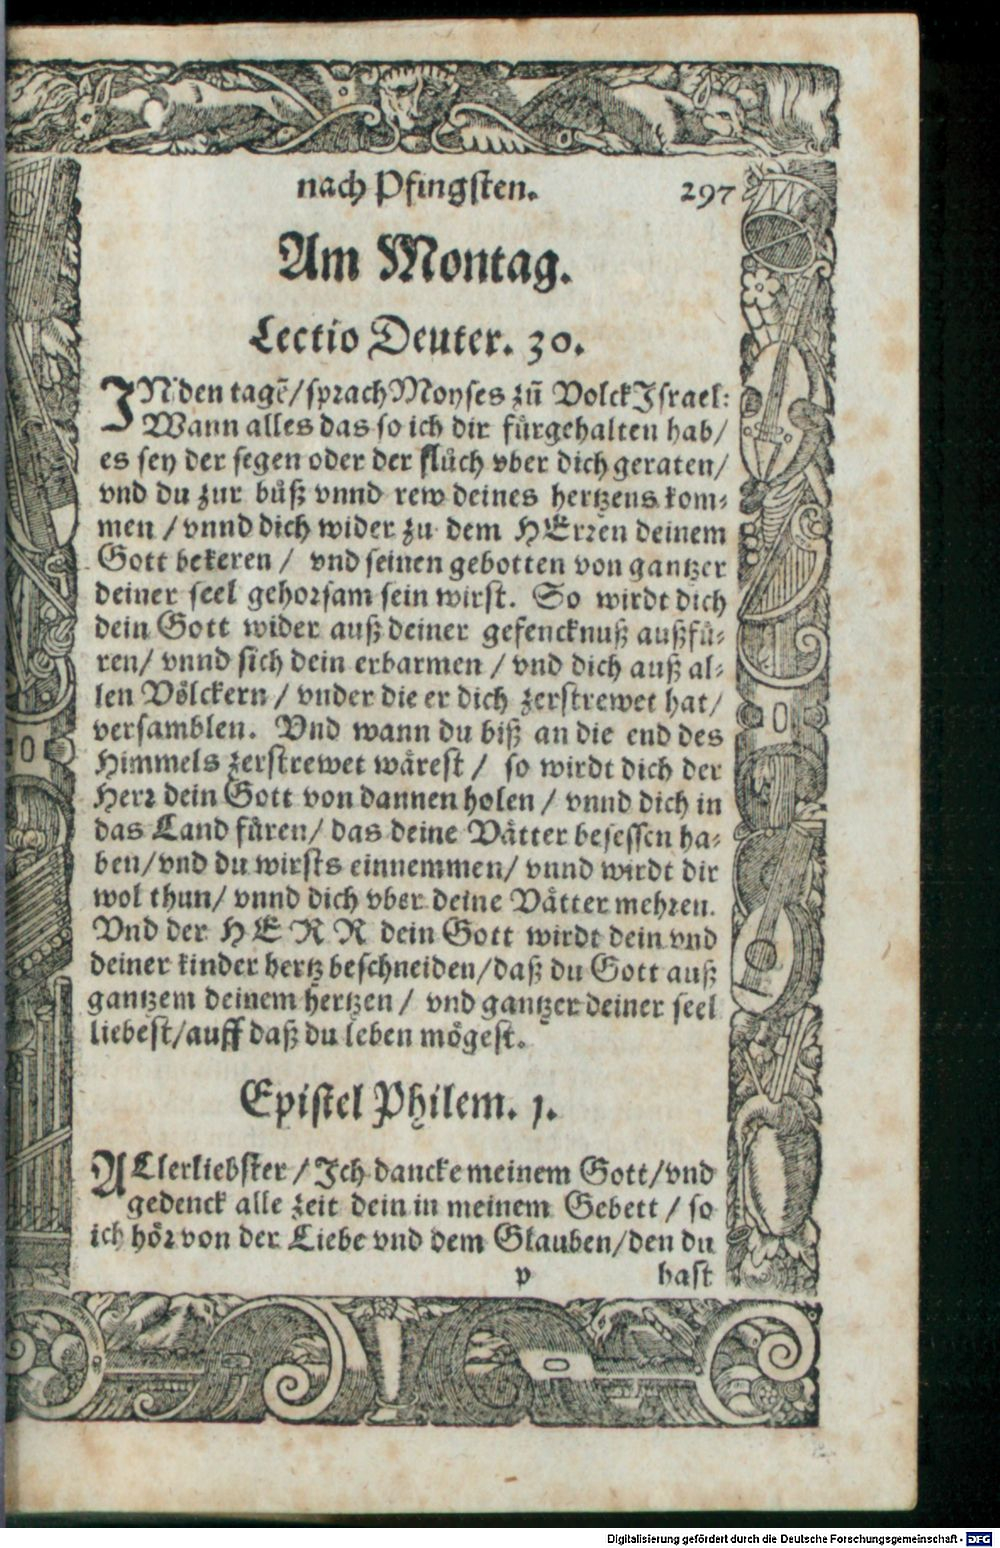 nach Pfingsten. 297
Am Montag.
Lectio Deuter. 30.
IN den tagẽ/sprach Moyses zũ Volck Israel:
Wann alles das so ich dir fürgehalten hab/
es sey der segen oder der flůch vber dich geraten/
vnd du zur bůß vnnd rew deines hertzens kom-
men / vnnd dich wider zu dem HErren deinem
Gott bekeren / vnd seinen gebotten von gantzer
deiner seel gehorsam sein wirst. So wirdt dich
dein Gott wider auß deiner gefencknuß außfü-
ren/ vnnd sich dein erbarmen / vnd dich auß al-
len Völckern / vnder die er dich zerstrewet hat/
versamblen. Vnd wann du biß an die end des
Himmels zerstrewet wärest / so wirdt dich der
Herr dein Gott von dannen holen / vnnd dich in
das Land füren/ das deine Vätter besessen ha-
ben/vnd du wirsts einnemmen/ vnnd wirdt dir
wol thun/ vnnd dich vber deine Vätter mehren.
Vnd der HERR dein Gott wirdt dein vnd
deiner kinder hertz beschneiden/daß du Gott auß
gantzem deinem hertzen / vnd gantzer deiner seel
liebest/auff daß du leben mögest.
Epistel Philem. 1.
ALlerliebster / Ich dancke meinem Gott/vnd
gedenck alle zeit dein in meinem Gebett / so
ich hör von der Liebe vnd dem Glauben/den du
p hast
Digitalisierung gefördert durch die Deutsche Forschungsgemeinschaft - DFG